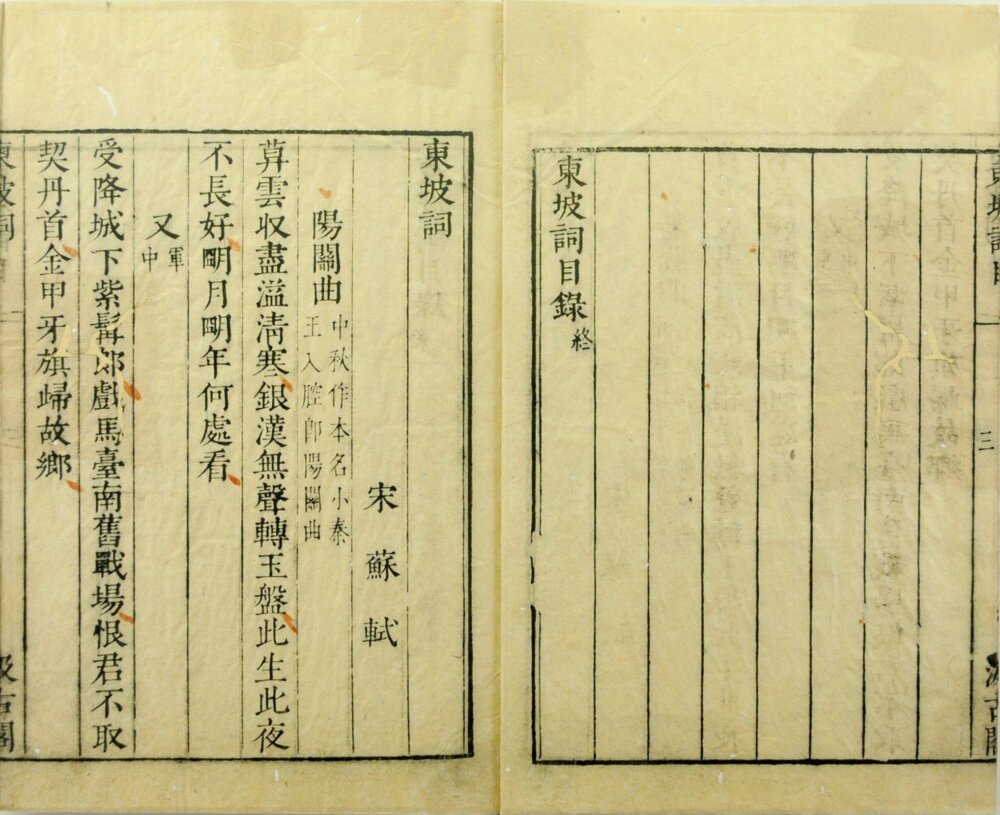 東坡詞目
三
汲古閣
東坡詞目錄終
東坡詞
宋蘇軾
陽關曲中秋作本名小秦
王入腔卽陽關曲
莫雲収盡溢清寒銀漢無聲轉玉盤此生此夜
不長好朙月朙年何處看
又軍
中
受降城下紫髯郎戲馬臺南舊戰場恨君不取
契丹首金甲牙旗歸故鄉
東坡詞
汲古閣